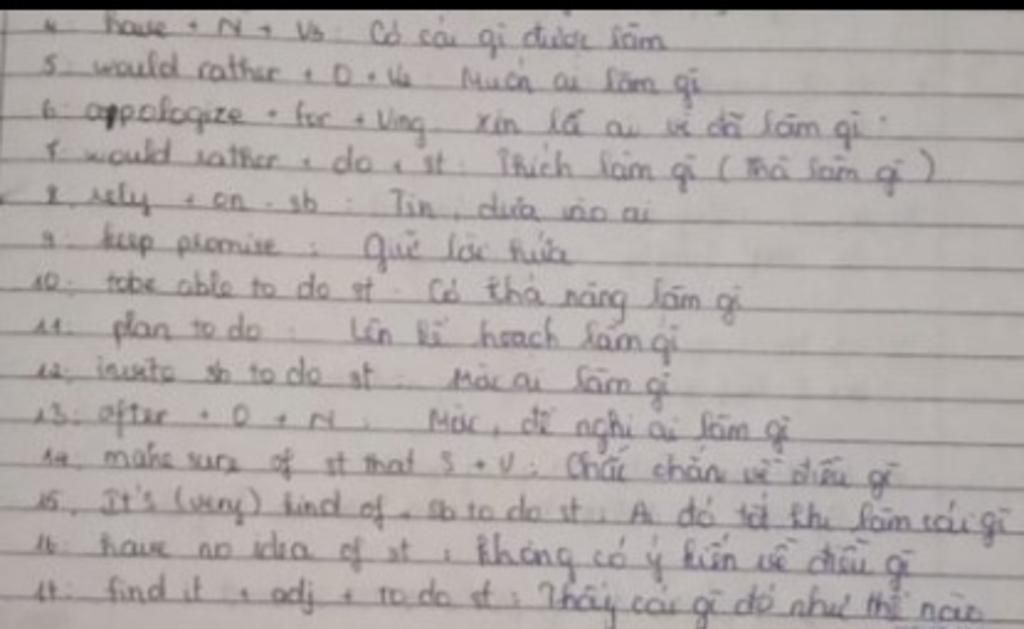 4. have + N + V3: Có cái gì được làm
5. would rather + O + V2: Muốn ai làm gì
6. appologize + for + Ving: xin lỗi ai vì đã làm gì
7. would rather + do + st: Thích làm gì (thà làm gì)
8. rely + on + sb: Tin, dựa vào ai
9. keep promise: Giữ lời hứa
10. tobe able to do st: Có khả năng làm gì
11. plan to do: Lên kế hoạch làm gì
12. invite sb to do st: Mời ai làm gì
13. offer + O + N: Mời, đề nghị ai làm gì
14. make sure of st that S + V: Chắc chắn về điều gì
15. It's (very) kind of + sb to do st: Ai đó tốt khi làm cái gì
16. have no idea of st: Không có ý kiến về điều gì
17. find it + adj + to do st: Thấy cái gì đó như thế nào